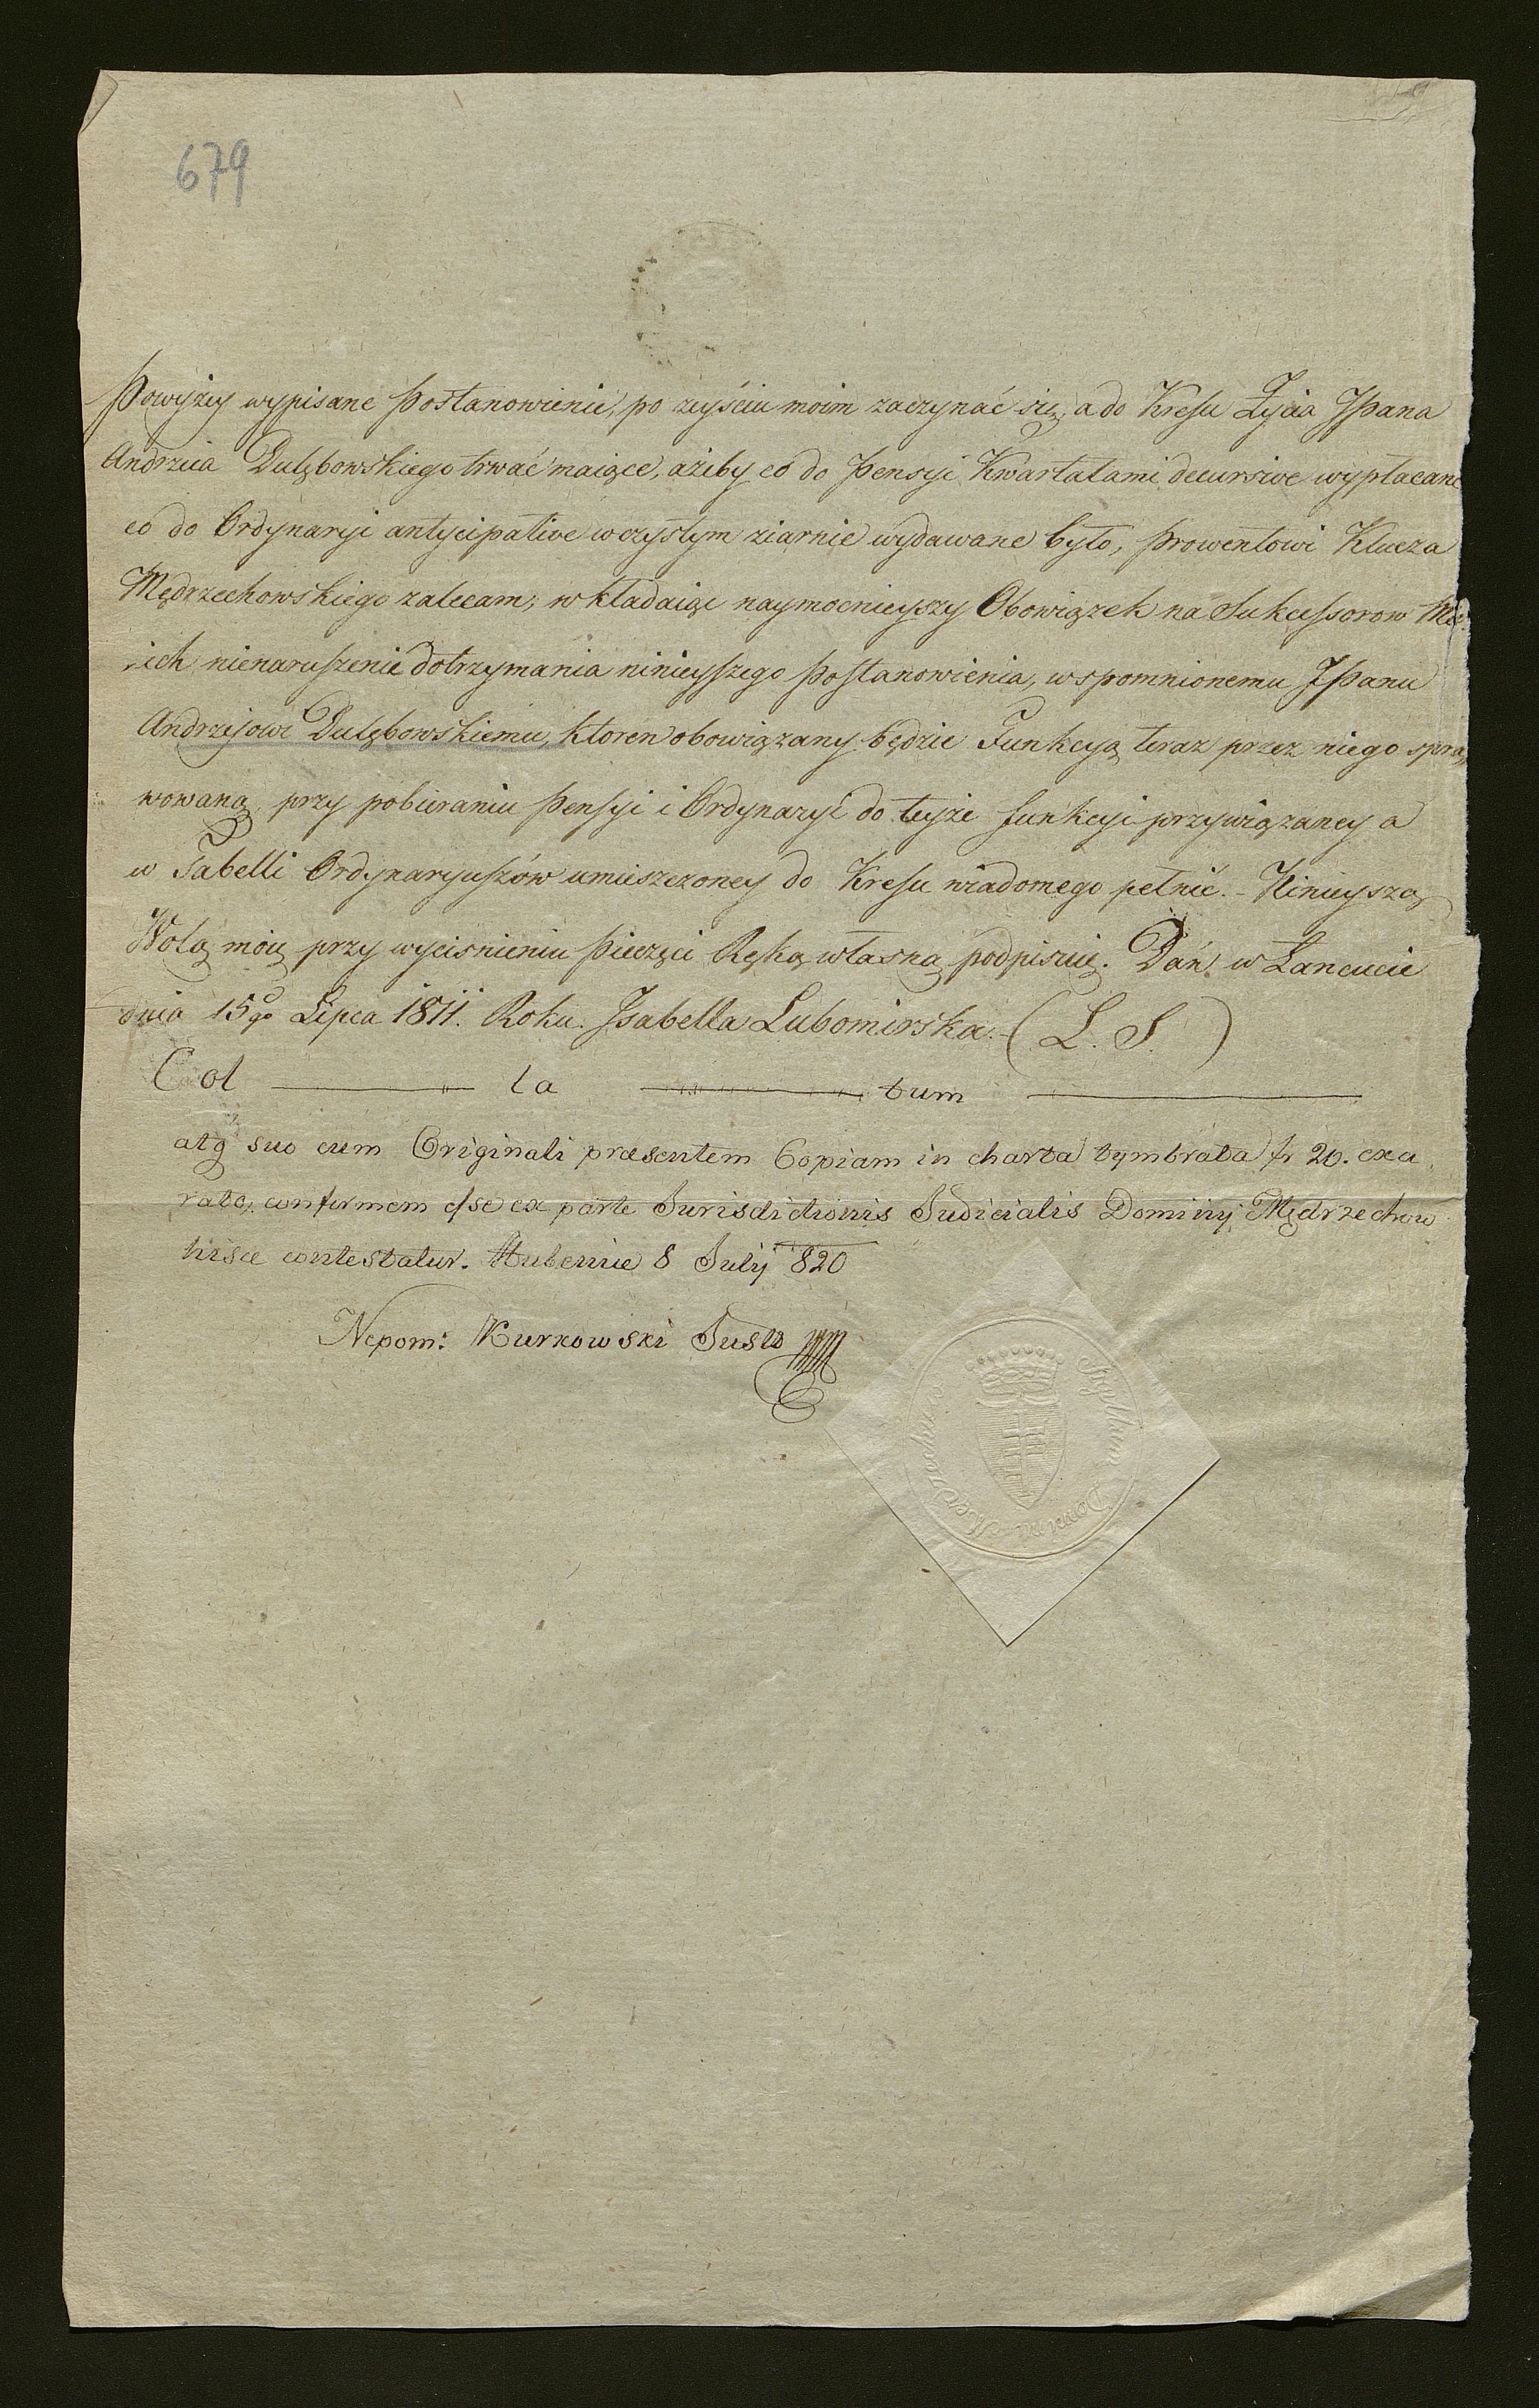 679
Powyżey wypisane Postanowienie, po zeyściu moim zaczynać się, a do Kresu Życia JPana
Andrzeia Dulębowskiego trwać maiące, ażeby co do Pensyi Kwartałami decursive wypłacane
co do Ordynaryi antycipative w czystym ziarnie wydawane było, Prowentowi Klucza
Mędrzechowskiego zalecam; wkładaiąc naymocnieyszy Obowiązek na Sukcessorow Mo-
ich nienaruszenie dotrzymania ninieyszego Postanowienia, wspomnionemu JPanu
Andrzejowi Dulębowskiemu, ktoren obowiązany będzie Funkcyą teraz przez niego spra,
wowaną, przy pobieraniu Pensyi i Ordynaryi do teyże funkcyi przywiązaney a
w Tabelli Ordynaryuszów umieszczoney do Kresu wiadomego pełnić. - Ninieyszą
Wolą moię przy wyciśnieniu Pieczęci Ręką własną podpisuię. Dań w Łancucie
dnia 15go Lipca 1811. Roku. Isabella Lubomirska. (L. S.)
Col la tum
atq suo cum Originali præsentem Copiam in charta tymbrata fr 20. exa
rata, conformem esse ex parte Jurisdictionis Judicialis Dominij Mędrzechow
hisce contestatur. Hubenice 8 Julij 820
Nepom: Kurkowski Justo
Sigillum Dominii Medrzechow